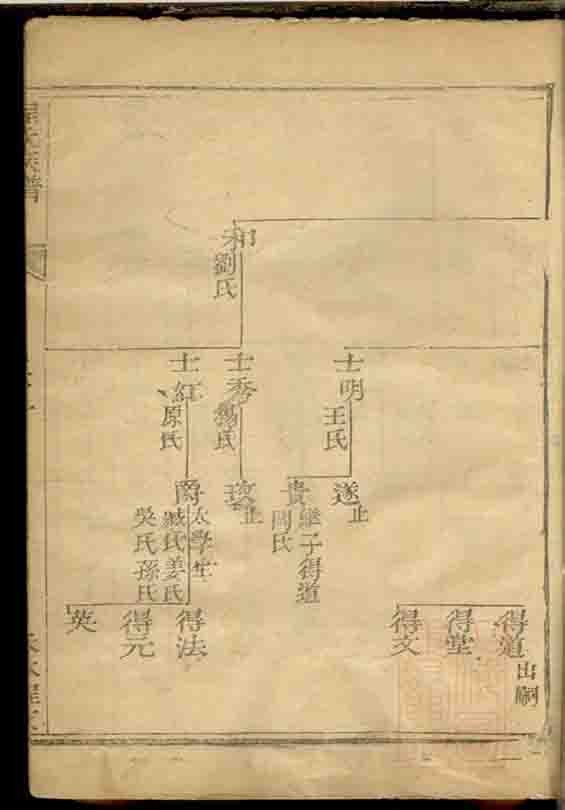 和
劉氏
士明
王氏
士秀
氏
士紅
原氏
遂
止
貴
繼子得道
周氏
止
爵
太學生
臧氏姜氏
吳氏孫氏
得道
出嗣
得堂
得文
得法
得元
英